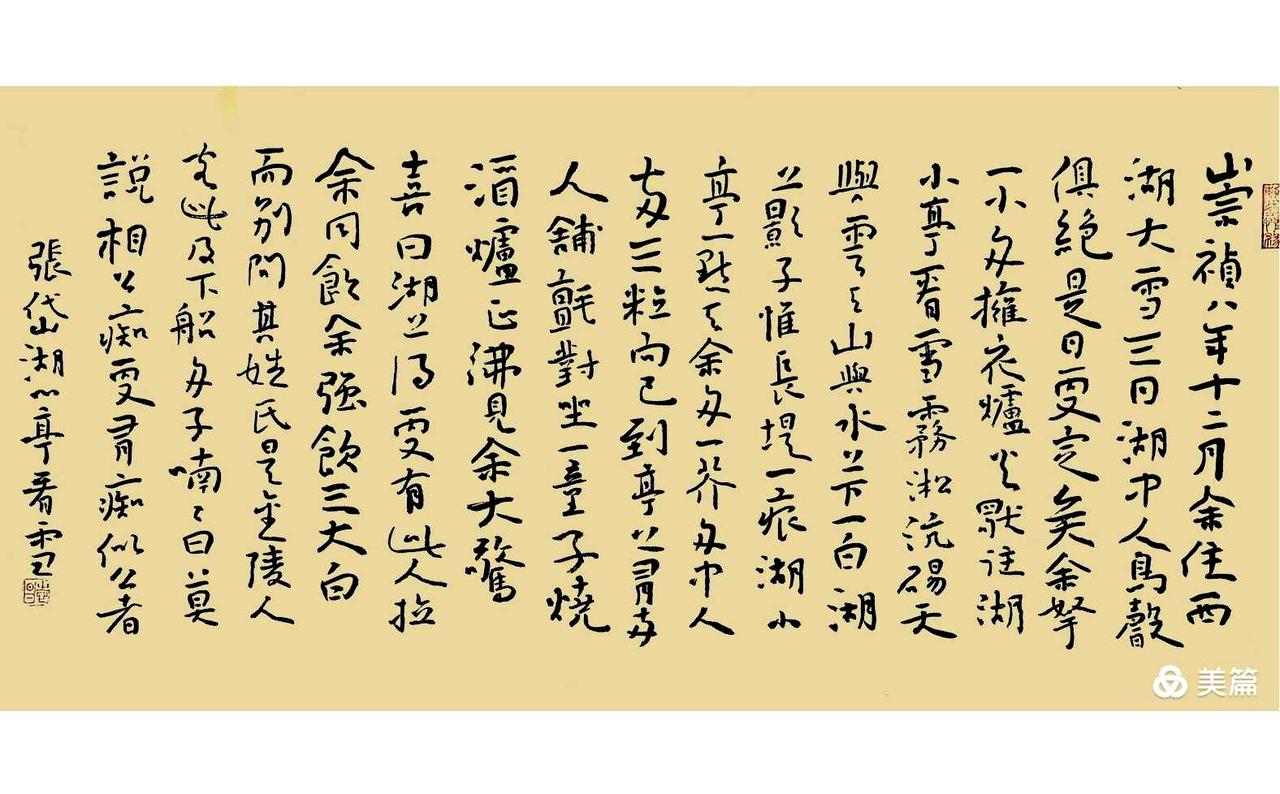 崇禎八年十二月余住西
湖大雪三日湖中人鳥聲
俱絕是日更定矣余拏
一小舟擁衣爐火獨往湖
心亭看雪霧淞沆碭天
與雲与山與水上下一白湖
上影子惟長堤一痕湖心
亭一點与余舟一芥舟中人
兩三粒而已到亭上有兩
人鋪氈對坐一童子燒
酒爐正沸見余大驚
喜曰湖上得更有此人拉
余同飲余強飲三大白
而別問其姓氏是金陵人
客此及下船舟子喃々曰莫
說相公痴更有痴似公者
張岱湖心亭看雪
美篇